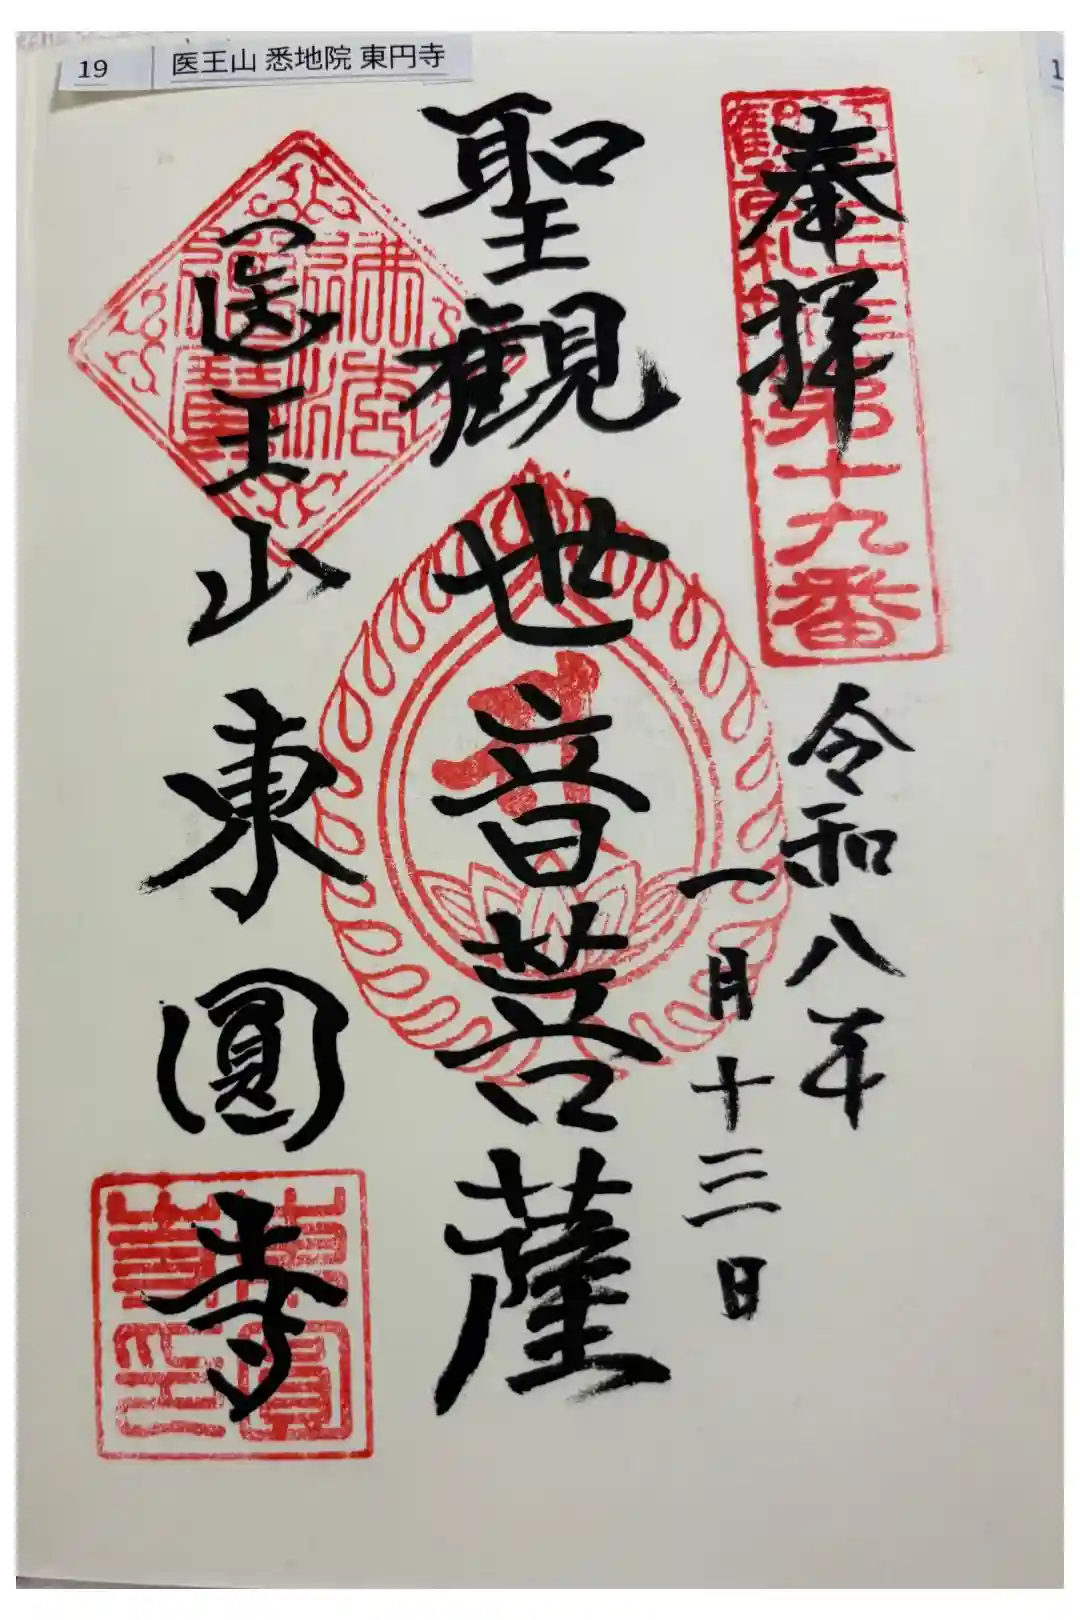 19
医王山 悉地院 東円寺
奉拝
第十九番
令和八年
一月十三日
聖観世音菩薩
医王山東圓寺
佛法僧寶
東圓寺印